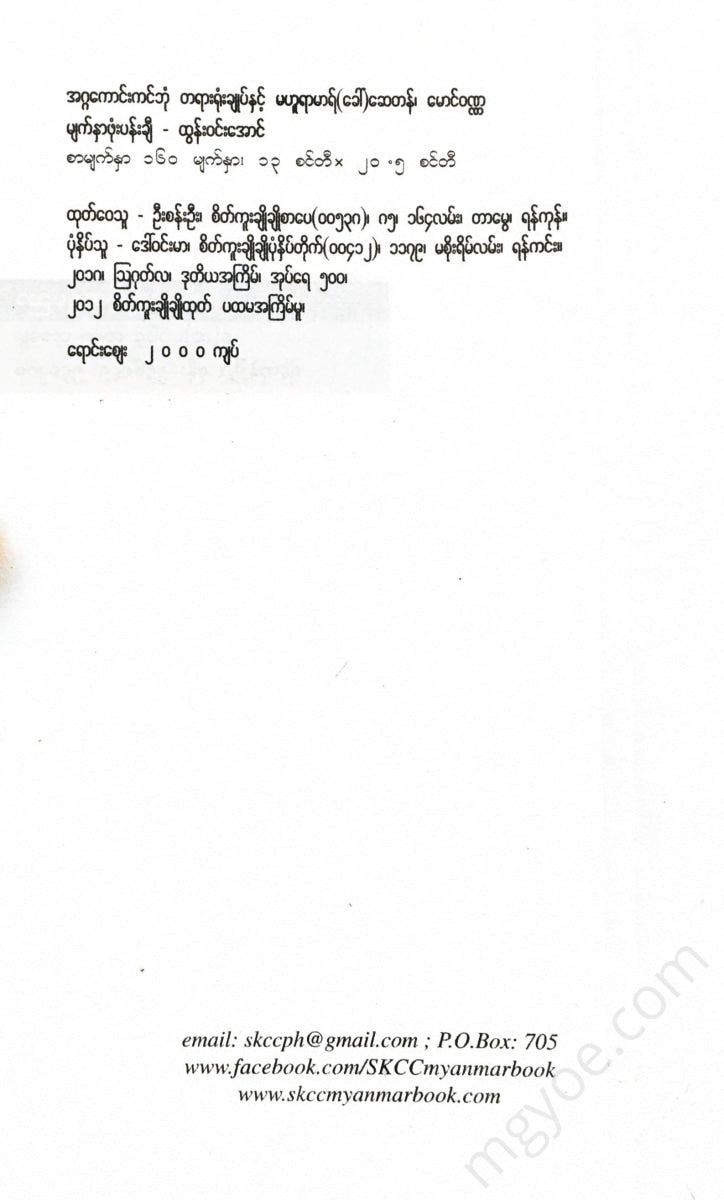 အဂ္ဂကောင်းကင်ဘုံ တရားရုံးချုပ်နှင့် မဟူရာမာရ်(ခေါ်)ဆေတန်၊ မောင်ဝဏ္ဏ
မျက်နှာဖုံးပန်းချီ - ထွန်းဝင်းအောင်
စာမျက်နှာ ၁၆၀ မျက်နှာ၊ ၁၃ စင်တီ× ၂၀.၅ စင်တီ
ထုတ်ဝေသူ - ဦးစန်းဦး၊ စိတ်ကူးချိုချိုစာပေ(၀၀၅၃၈)၊ ဂ၅၊ ၁၆၄လမ်း၊ တာမွေ၊ ရန်ကုန်။
ပုံနှိပ်သူ - ဒေါ်ဝင်းမာ၊ စိတ်ကူးချိုချိုပုံနှိပ်တိုက်(၀၀၄၁၂)၊ ၁၁၇၉၊ မစိုးရိမ်လမ်း၊ ရန်ကင်း။
၂၀၁၈၊ ဩဂုတ်လ၊ ဒုတိယအကြိမ်၊ အုပ်ရေ ၅၀၀၊
၂၀၁၂ စိတ်ကူးချိုချိုထုတ် ပထမအကြိမ်မူ၊
ရောင်းဈေး ၂၀၀၀ ကျပ်
email: skccph@gmail.com ; P.O.Box: 705
www.facebook.com/SKCCmyanmarbook
www.skccmyanmarbook.com
mgyoe.com